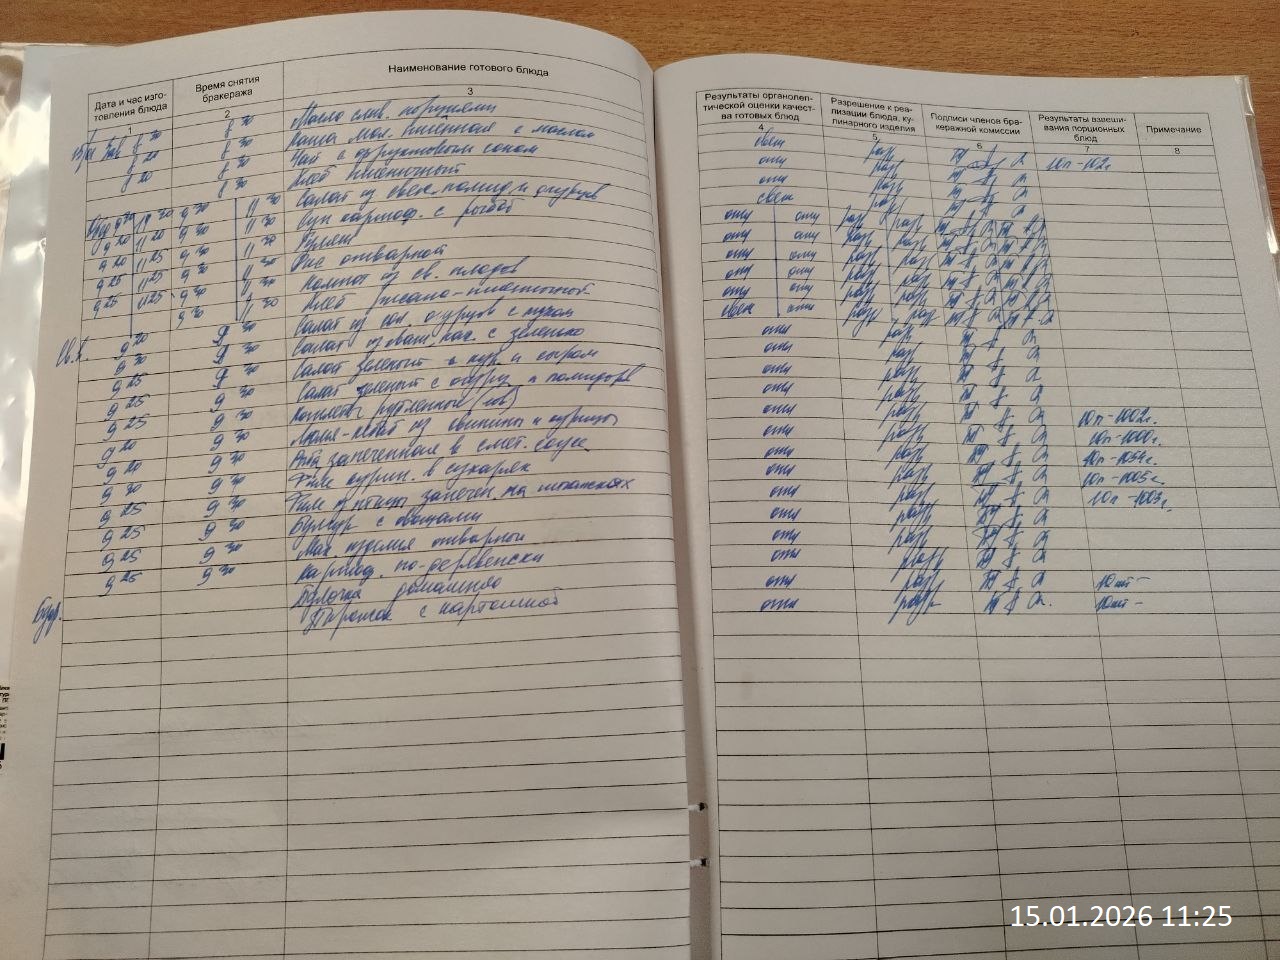 Дата и час изго-
товления блюда
Время снятия
бракеража
Наименование готового блюда
Результаты органолеп-
тической оценки качест-
ва готовых блюд
Разрешение к реа-
лизации блюда, ку-
линарного изделия
Подписи членов бра-
керажной комиссии
Результаты взвеши-
вания порционных
блюд
Примечание
1 2 3 4 5 6 7 8
8 30 Масло слив. порциями свеж разр
8 20 8 30 Каша мол. пшённая с маслом отл разр 10п-102г
8 20 8 30 Чай с фруктовым соком отл разр
8 30 Хлеб пшеничный свеж разр
9 20 11 20 9 30 11 30 Салат из свеж. помид. и огурцов отл отл разр разр
9 20 11 20 9 30 11 30 Суп картоф. с рыбой отл отл разр разр
9 20 11 25 9 30 11 30 отл отл разр разр
9 25 11 25 9 30 11 30 Рис отварной отл отл разр разр
9 25 11 25 9 30 11 30 Компот из св. плодов отл отл разр разр
9 30 11 30 Хлеб ржано-пшеничный свеж отл разр разр
Св. б. 9 20 9 30 Салат из сол. огурцов с луком отл разр
9 20 9 30 Салат из с зеленью отл разр
9 25 9 30 Салат зеленый с кур. и сыром отл разр
9 25 9 30 Салат зеленый с огурц. и помидором отл разр
9 25 9 30 Котлеты рубленные отл разр 10п-1002г.
9 20 9 30 Люля-кебаб из свинины и курицы отл разр 10п-1000г.
9 20 9 30 запеченная в смет. соусе отл разр 10п-1034г.
9 20 9 30 Филе курин. в сухарях отл разр 10п-1005г.
9 25 9 30 Филе птицы запечен. на шпажках отл разр 10п-1003г.
9 25 9 30 Булгур с овощами отл разр
9 25 9 30 Мак. изделия отварной отл разр
9 25 9 30 Картоф. по-деревенски отл разр
Буф. Булочка домашняя отл разр 10шт-
Пирожок с картошкой отл разр 10шт-
15.01.2026 11:25